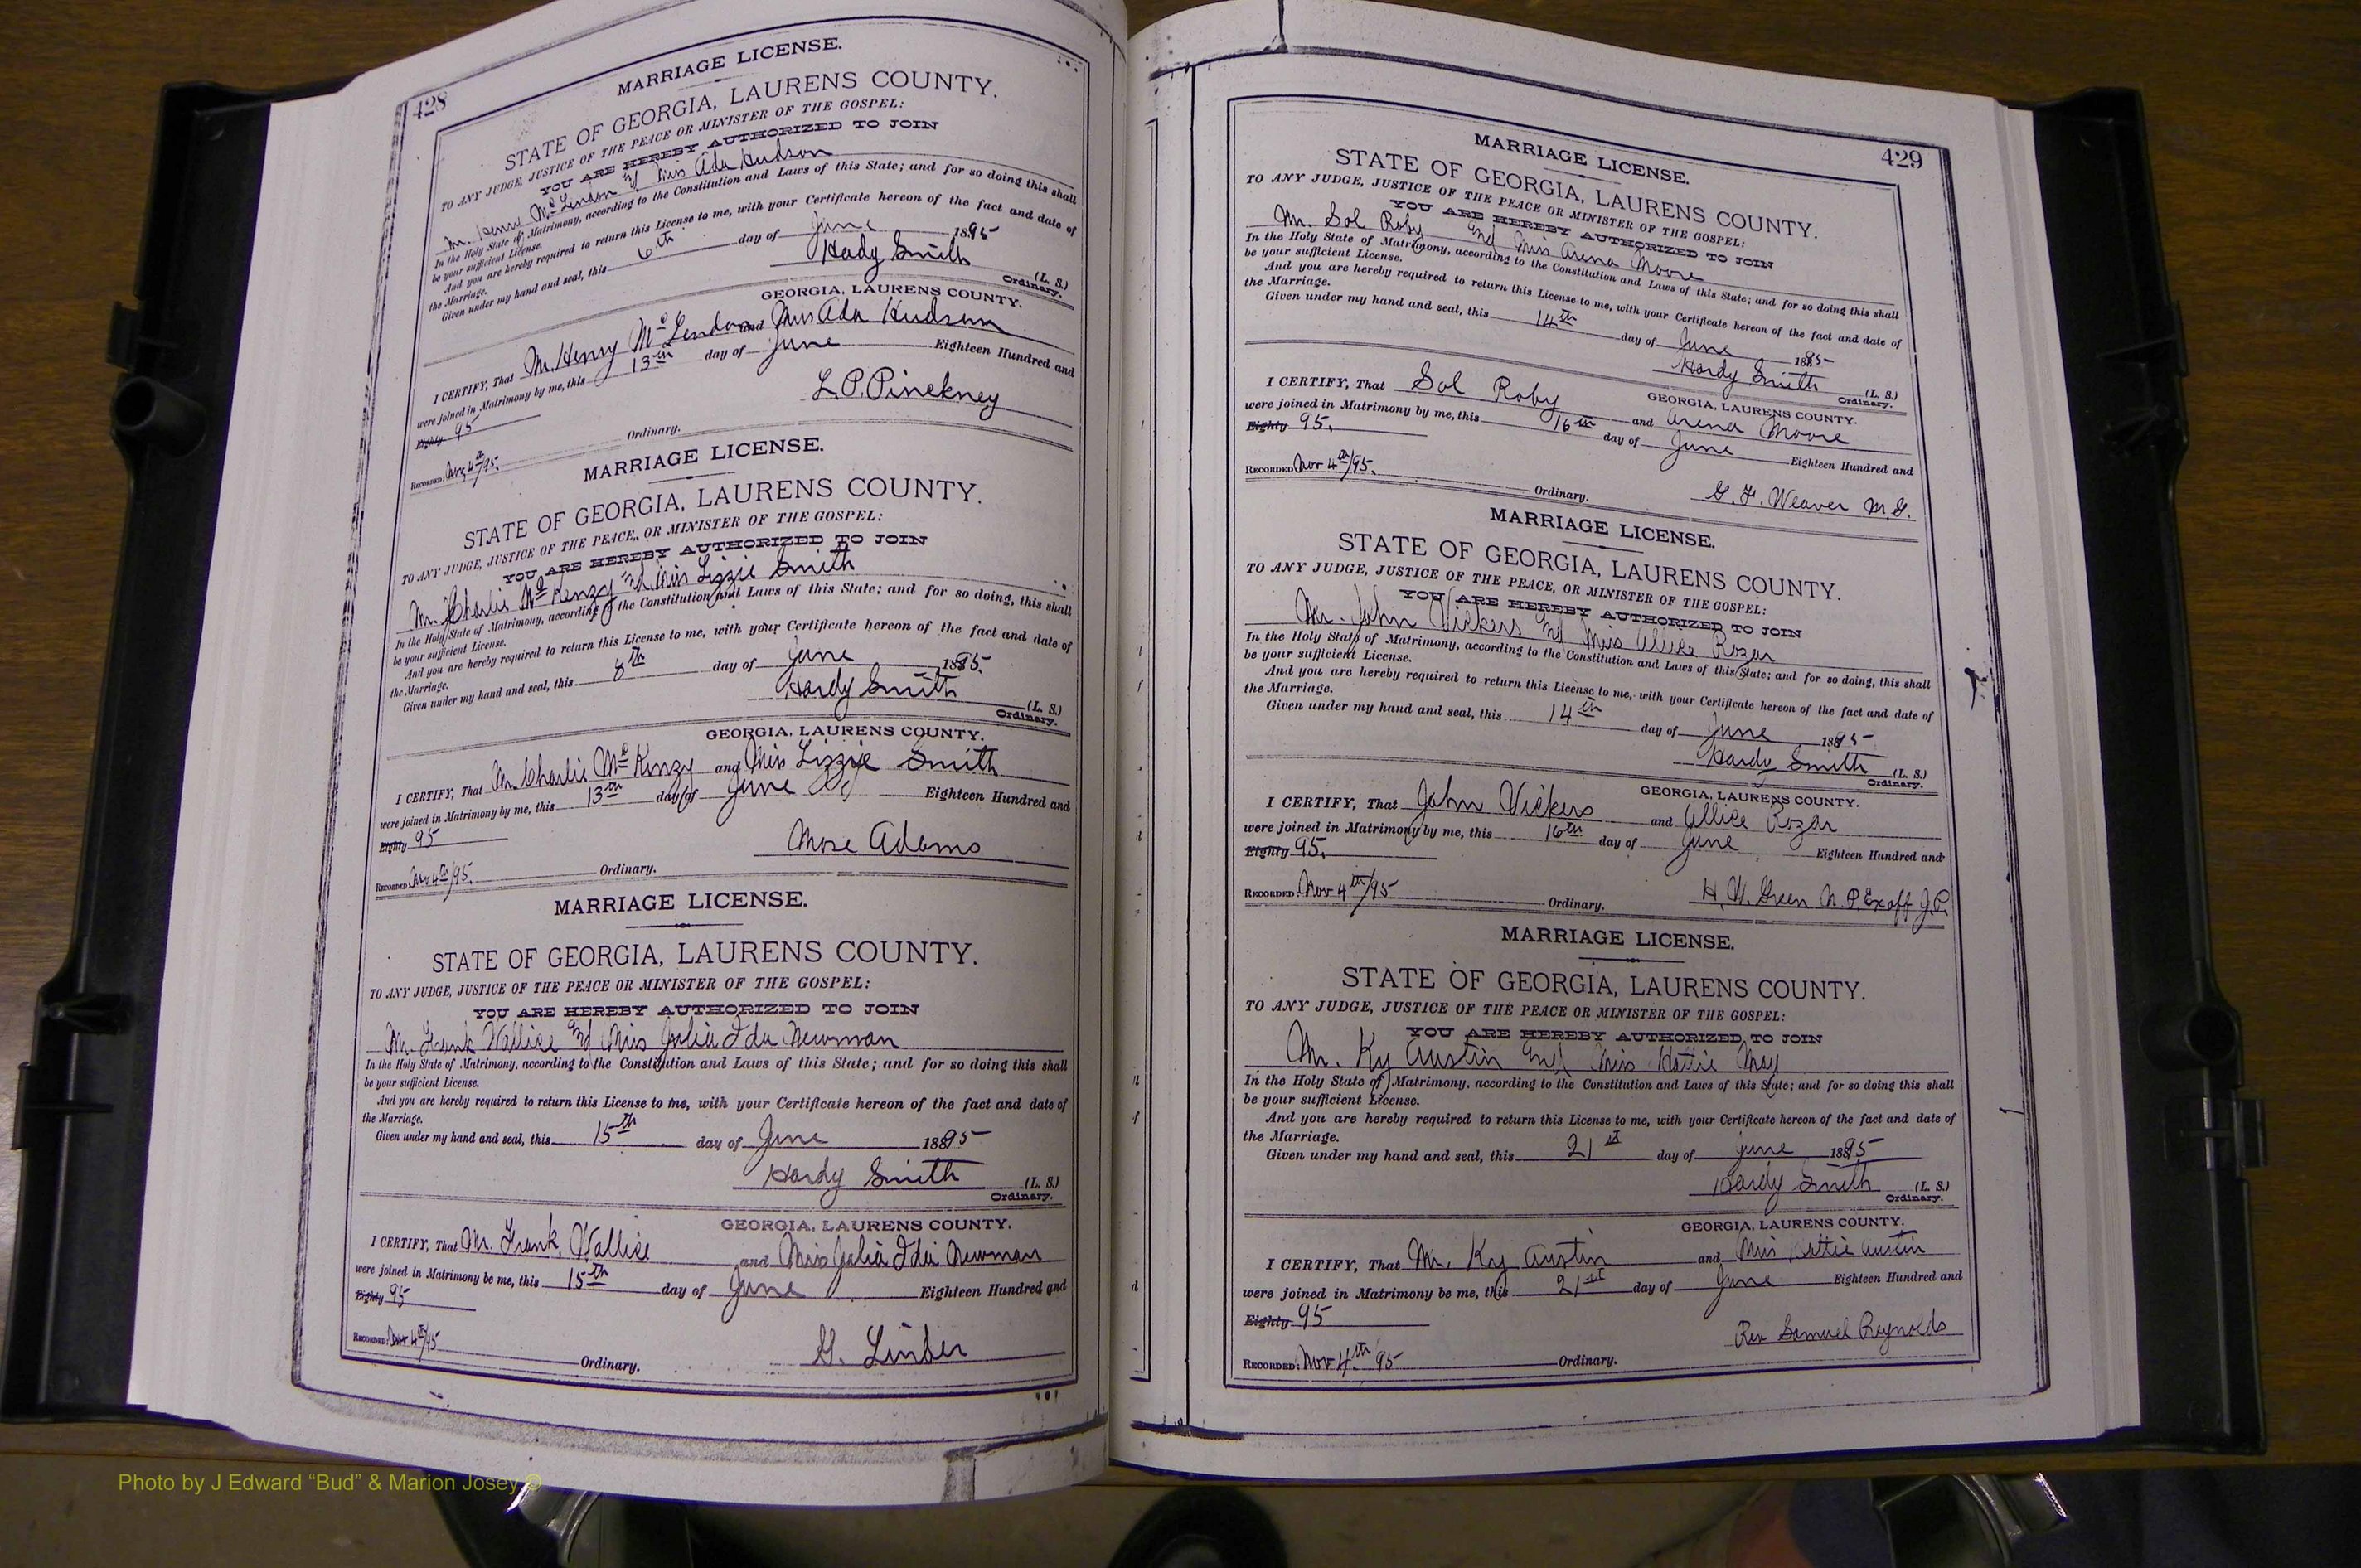 428
MARRIAGE LICENSE.
STATE OF GEORGIA, LAURENS COUNTY.
TO ANY JUDGE, JUSTICE OF THE PEACE OR MINISTER OF THE GOSPEL:
YOU ARE HEREBY AUTHORIZED TO JOIN
Mr. Henry McLendon and Miss Ada Hudson
In the Holy State of Matrimony, according to the Constitution and Laws of this State; and for so doing this shall
be your sufficient License.
And you are hereby required to return this License to me, with your Certificate hereon of the fact and date of
the Marriage.
Given under my hand and seal, this 6th day of June 1895
Hardy Smith (L. S.)
Ordinary.
GEORGIA, LAURENS COUNTY.
I CERTIFY, That Mr. Henry McLendon and Miss Ada Hudson
were joined in Matrimony by me, this 13th day of June Eighteen Hundred and
Eighty 95
L. P. Pinckney
Recorded: Nov 4th/95. Ordinary.
MARRIAGE LICENSE.
STATE OF GEORGIA, LAURENS COUNTY.
TO ANY JUDGE, JUSTICE OF THE PEACE, OR MINISTER OF THE GOSPEL:
YOU ARE HEREBY AUTHORIZED TO JOIN
Mr. Charlie McKenzy and Miss Lizzie Smith
In the Holy State of Matrimony, according to the Constitution and Laws of this State; and for so doing, this shall
be your sufficient License.
And you are hereby required to return this License to me, with your Certificate hereon of the fact and date of
the Marriage.
Given under my hand and seal, this 8th day of June 1895.
Hardy Smith (L. S.)
Ordinary.
GEORGIA, LAURENS COUNTY.
I CERTIFY, That Mr. Charlie McKinzy and Miss Lizzie Smith
were joined in Matrimony by me, this 13th day of June Eighteen Hundred and
Eighty 95
Mose Adams
Recorded: Nov 4th/95. Ordinary.
MARRIAGE LICENSE.
STATE OF GEORGIA, LAURENS COUNTY.
TO ANY JUDGE, JUSTICE OF THE PEACE OR MINISTER OF THE GOSPEL:
YOU ARE HEREBY AUTHORIZED TO JOIN
Mr. Frank Wallice and Miss Julia Ida Newman
In the Holy State of Matrimony, according to the Constitution and Laws of this State; and for so doing this shall
be your sufficient License.
And you are hereby required to return this License to me, with your Certificate hereon of the fact and date of
the Marriage.
Given under my hand and seal, this 15th day of June 1895
Hardy Smith (L. S.)
Ordinary.
GEORGIA, LAURENS COUNTY.
I CERTIFY, That Mr. Frank Wallice and Miss Julia Ida Newman
were joined in Matrimony be me, this 15th day of June Eighteen Hundred and
Eighty 95
Recorded: Nov 4th/95 Ordinary. G. Linder
429
MARRIAGE LICENSE.
STATE OF GEORGIA, LAURENS COUNTY.
TO ANY JUDGE, JUSTICE OF THE PEACE OR MINISTER OF THE GOSPEL:
YOU ARE HEREBY AUTHORIZED TO JOIN
Mr. Sol Roby and Miss Arena Moore
In the Holy State of Matrimony, according to the Constitution and Laws of this State; and for so doing this shall
be your sufficient License.
And you are hereby required to return this License to me, with your Certificate hereon of the fact and date of
the Marriage.
Given under my hand and seal, this 14th day of June 1895
Hardy Smith (L. S.)
Ordinary.
GEORGIA, LAURENS COUNTY.
I CERTIFY, That Sol Roby and Arena Moore
were joined in Matrimony by me, this 16th day of June Eighteen Hundred and
Eighty 95.
Recorded Nov 4th/95. Ordinary. G. F. Weaver M.G.
MARRIAGE LICENSE.
STATE OF GEORGIA, LAURENS COUNTY.
TO ANY JUDGE, JUSTICE OF THE PEACE, OR MINISTER OF THE GOSPEL:
YOU ARE HEREBY AUTHORIZED TO JOIN
Mr. John Vickers and Miss Allice Rozar
In the Holy State of Matrimony, according to the Constitution and Laws of this State; and for so doing, this shall
be your sufficient License.
And you are hereby required to return this License to me, with your Certificate hereon of the fact and date of
the Marriage.
Given under my hand and seal, this 14th day of June 1895
Hardy Smith (L. S.)
Ordinary.
GEORGIA, LAURENS COUNTY.
I CERTIFY, That John Vickers and Allice Rozar
were joined in Matrimony by me, this 16th day of June Eighteen Hundred and
Eighty 95.
Recorded: Nov 4th/95 Ordinary. H. W. Green N. P. Exoff J.P.
MARRIAGE LICENSE.
STATE OF GEORGIA, LAURENS COUNTY.
TO ANY JUDGE, JUSTICE OF THE PEACE OR MINISTER OF THE GOSPEL:
YOU ARE HEREBY AUTHORIZED TO JOIN
Mr. Ky Austin and Miss Hattie May
In the Holy State of Matrimony, according to the Constitution and Laws of this State; and for so doing this shall
be your sufficient License.
And you are hereby required to return this License to me, with your Certificate hereon of the fact and date of
the Marriage.
Given under my hand and seal, this 21st day of June 1895
Hardy Smith (L. S.)
Ordinary.
GEORGIA, LAURENS COUNTY.
I CERTIFY, That Mr. Ky Austin and Miss Hattie Austin
were joined in Matrimony be me, this 21st day of June Eighteen Hundred and
Eighty 95
Rev Samuel Reynolds
Recorded: Nov 4th 95 Ordinary.
Photo by J Edward “Bud” & Marion Josey ©